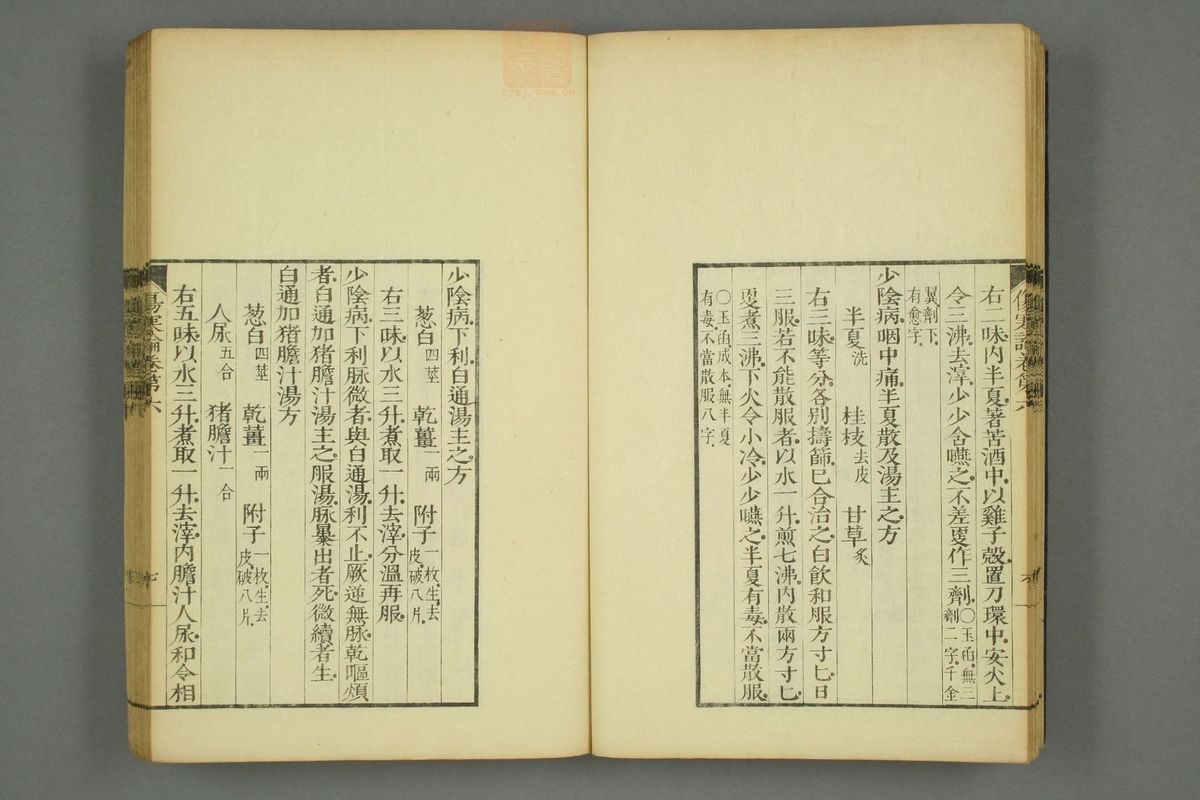 右二味、内半夏、著苦酒中、以雞子殼置刀環中、安火上、
令三沸、去滓、少少含嚥之、不差更作三劑、○玉函、無三劑二字、千金
翼劑下、有愈字、
少陰病、咽中痛、半夏散及湯主之方
半夏洗 桂枝去皮 甘草炙
右三味、等分、各別擣篩已、合治之、白飲和服方寸匕、日
三服、若不能散服者、以水一升、煎七沸、内散兩方寸匕、
更煮三沸、下火令小冷、少少嚥之、半夏有毒、不當散服、
○玉函、成本、無半夏有毒、不當散服八字、
傷寒論卷第六
六
少陰病、下利、白通湯主之方
葱白四莖 乾薑一兩 附子一枚、生、去皮、破八片、
右三味、以水三升、煮取一升、去滓、分溫再服、
少陰病、下利脉微者、與白通湯、利不止、厥逆無脉、乾嘔煩
者、白通加猪膽汁湯主之、服湯、脉暴出者死、微續者生、
白通加猪膽汁湯方
葱白四莖 乾薑一兩 附子一枚、生、去皮、破八片、
人尿五合 猪膽汁一合
右五味、以水三升、煮取一升、去滓、内膽汁人尿、和令相
傷寒論卷第六
七
zysj.com.cn